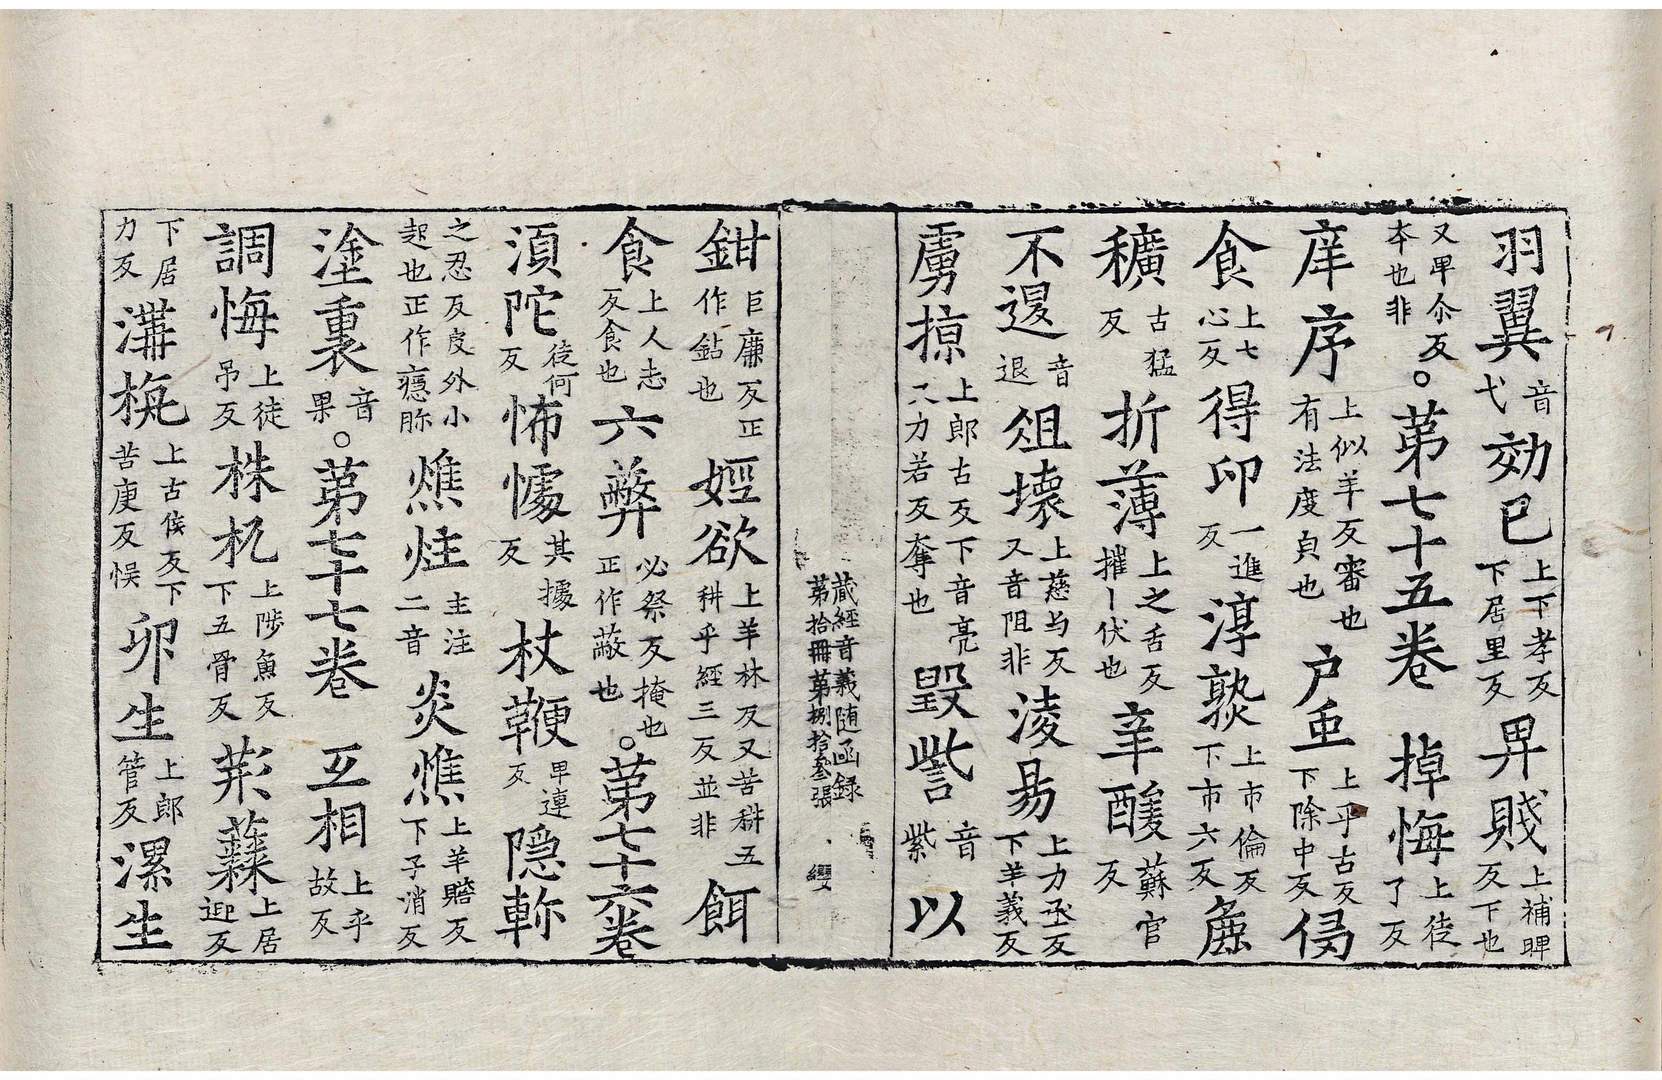 羽翼音弋効已上下孝反下居里反畀賤上補睥反下也
又畢尒反夲也非。第七十五巻 掉悔上徒了反
庠序上似羊反審也有法度皃也户重上乎古反下除中反㑴
食上七心反得印一進反淳䓫上市倫反下市六反麁
穬古猛反折薄上之舌反摧丨伏也辛酸蘇官反
不退音退俎壊上慈与反又音阻非淩易上力丞反下羊義反
虜掠上郎古反下音亮又力若反奪也毀訾音紫以
藏經音義随函録
第拾冊第捌拾叄張 纓
鉗巨廉反正作鉆也婬欲上羊林反又苦耕五耕乎經三反並非餌
食上人志反食也六弊必祭反掩也正作蔽也。第七十六巻
湏陀徒何反怖懅其據反杖鞭卑連反隠軫
之忍反皮外小起也正作㾙胗燋炷主注二音炎燋上羊贍反下子消反
塗裏音果。第七十七巻 互相上乎故反
調悔上徒吊反株杌上陟魚反下五骨反蕀䕓上居迎反
下居力反溝梚上古侯反下苦庚反悮卵生上郎管反漯生